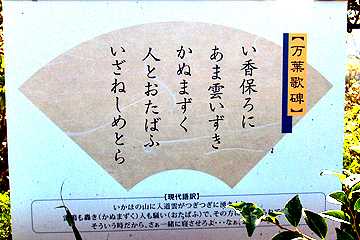 【万葉歌碑】
い香保ろに
あま雲いずき
かぬまずく
人とおたばふ
いざねしめとら
【現代語訳】
いかほの山に入道雲がつぎつぎに湧き
鳴も轟き(かぬまずく)人も騒い(おたばふ)で、その方に
そういう時だから、さぁ一緒に寝させろよ・・なぁ